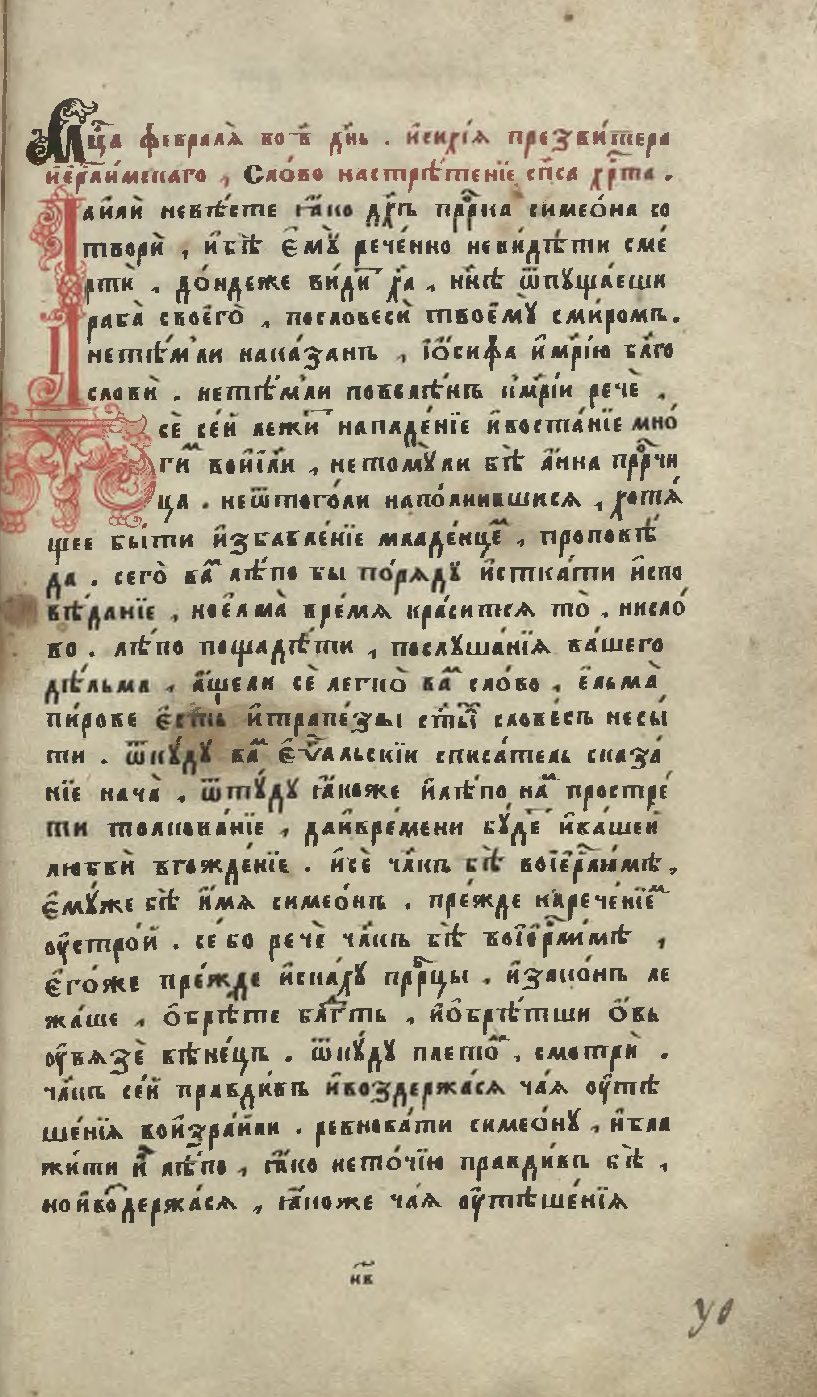 Мⷭ҇ца феврала̀ во в҃ дн҃ь . и҆си́хїѧ презви́тера
і҆ерⷭ҇ли́мскаго , Сло́во настрѣ́тенїе сп҃са хрⷭ҇та̀ .
И҆лѝ невѣ́сте ꙗ҆́ко дх҃ъ прⷪ҇рка симео́на со
творѝ , и҆бѣ̀ є҆мꙋ̀ рече́нно неви́дѣти сме́
ртѝ , до́ндеже ви́дитъ хрⷭ҇та̀ , нн҃ѣ ѿпꙋща́еши
раба̀ своего̀ , пословесѝ твоемꙋ̀ сми́ромъ .
нетѣ́мъли нака́занъ , і҆ѡ́сифа и҆мр҃і́ю благо
словѝ . нетѣ́мъли повелѣ́нъ и҆мр҃і́и речѐ ,
сѐ се́й лежи́тъ нападе́нїе и҆воста́нїе мно́
гимъ вои҆і҃ли , нетомꙋ́ли бѣ̀ а҆́нна прⷪ҇рчи
ца . неѿтого́ли напо́лнившисѧ , хотѧ́
щее бы́ти и҆збавле́нїе младе́нцемъ , проповѣ́
да . сего̀ ва́мъ лѣ́по бы по́рѧдꙋ и҆стка́ти и҆спо
вѣ́данїе , ноє҆лма̀ вре́мѧ краси́тсѧ то̀ , нисло́
во . лѣ́по пощадѣ́ти , послꙋша́нїѧ ва́шего
дѣ́льма , а҆́щели сѐ легко̀ ва́мъ сло́во , є҆льма̀
пи́рове є҆́сть и҆трапе́зы ст҃ы́хъ слове́съ несы́
ти . ѿкꙋ́дꙋ ва́мъ є҆ѵⷢ҇альскїи списа́тель сказа́
нїе нача̀ , ѿтꙋ́дꙋ ꙗ҆́коже и҆лѣ́по на́мъ простре́
ти толкова́нїе , даи҆вре́мени бꙋ́детъ и҆ва́шей
любвѝ вгожде́нїе . и҆сѐ чл҃къ бѣ̀ воі҆ерⷭ҇ли́мѣ ,
є҆мꙋ́же бѣ̀ и҆́мѧ симео́нъ . пре́жде нарече́нїемъ
оу҆стро́й . се́ бо речѐ чл҃къ бѣ̀ воі҆ерⷭ҇ли́мѣ ,
є҆го́же пре́жде и҆ска́хꙋ прⷪ҇рцы . и҆зако́нъ ле
жа́ше , ѡ҆брѣ́те блгⷣть , и҆ѡ҆брѣ́тши ѡ҆́вы
оу҆вѧзѐ вѣне́цъ . ѿкꙋ́дꙋ плето́мъ , смотрѝ .
чл҃къ се́й правди́въ и҆воздержа́сѧ ча́ѧ оу҆тѣ
ше́нїѧ вои҆зра́или . ревнова́ти симео́нꙋ , и҆бла
жи́ти и҆̀ лѣ́по , ꙗ҆́ко неточі́ю правди́въ бѣ̀ ,
нои҆воздержа́сѧ , ꙗ҆́коже ча́ѧ оу҆тѣше́нїѧ
н҃в
40